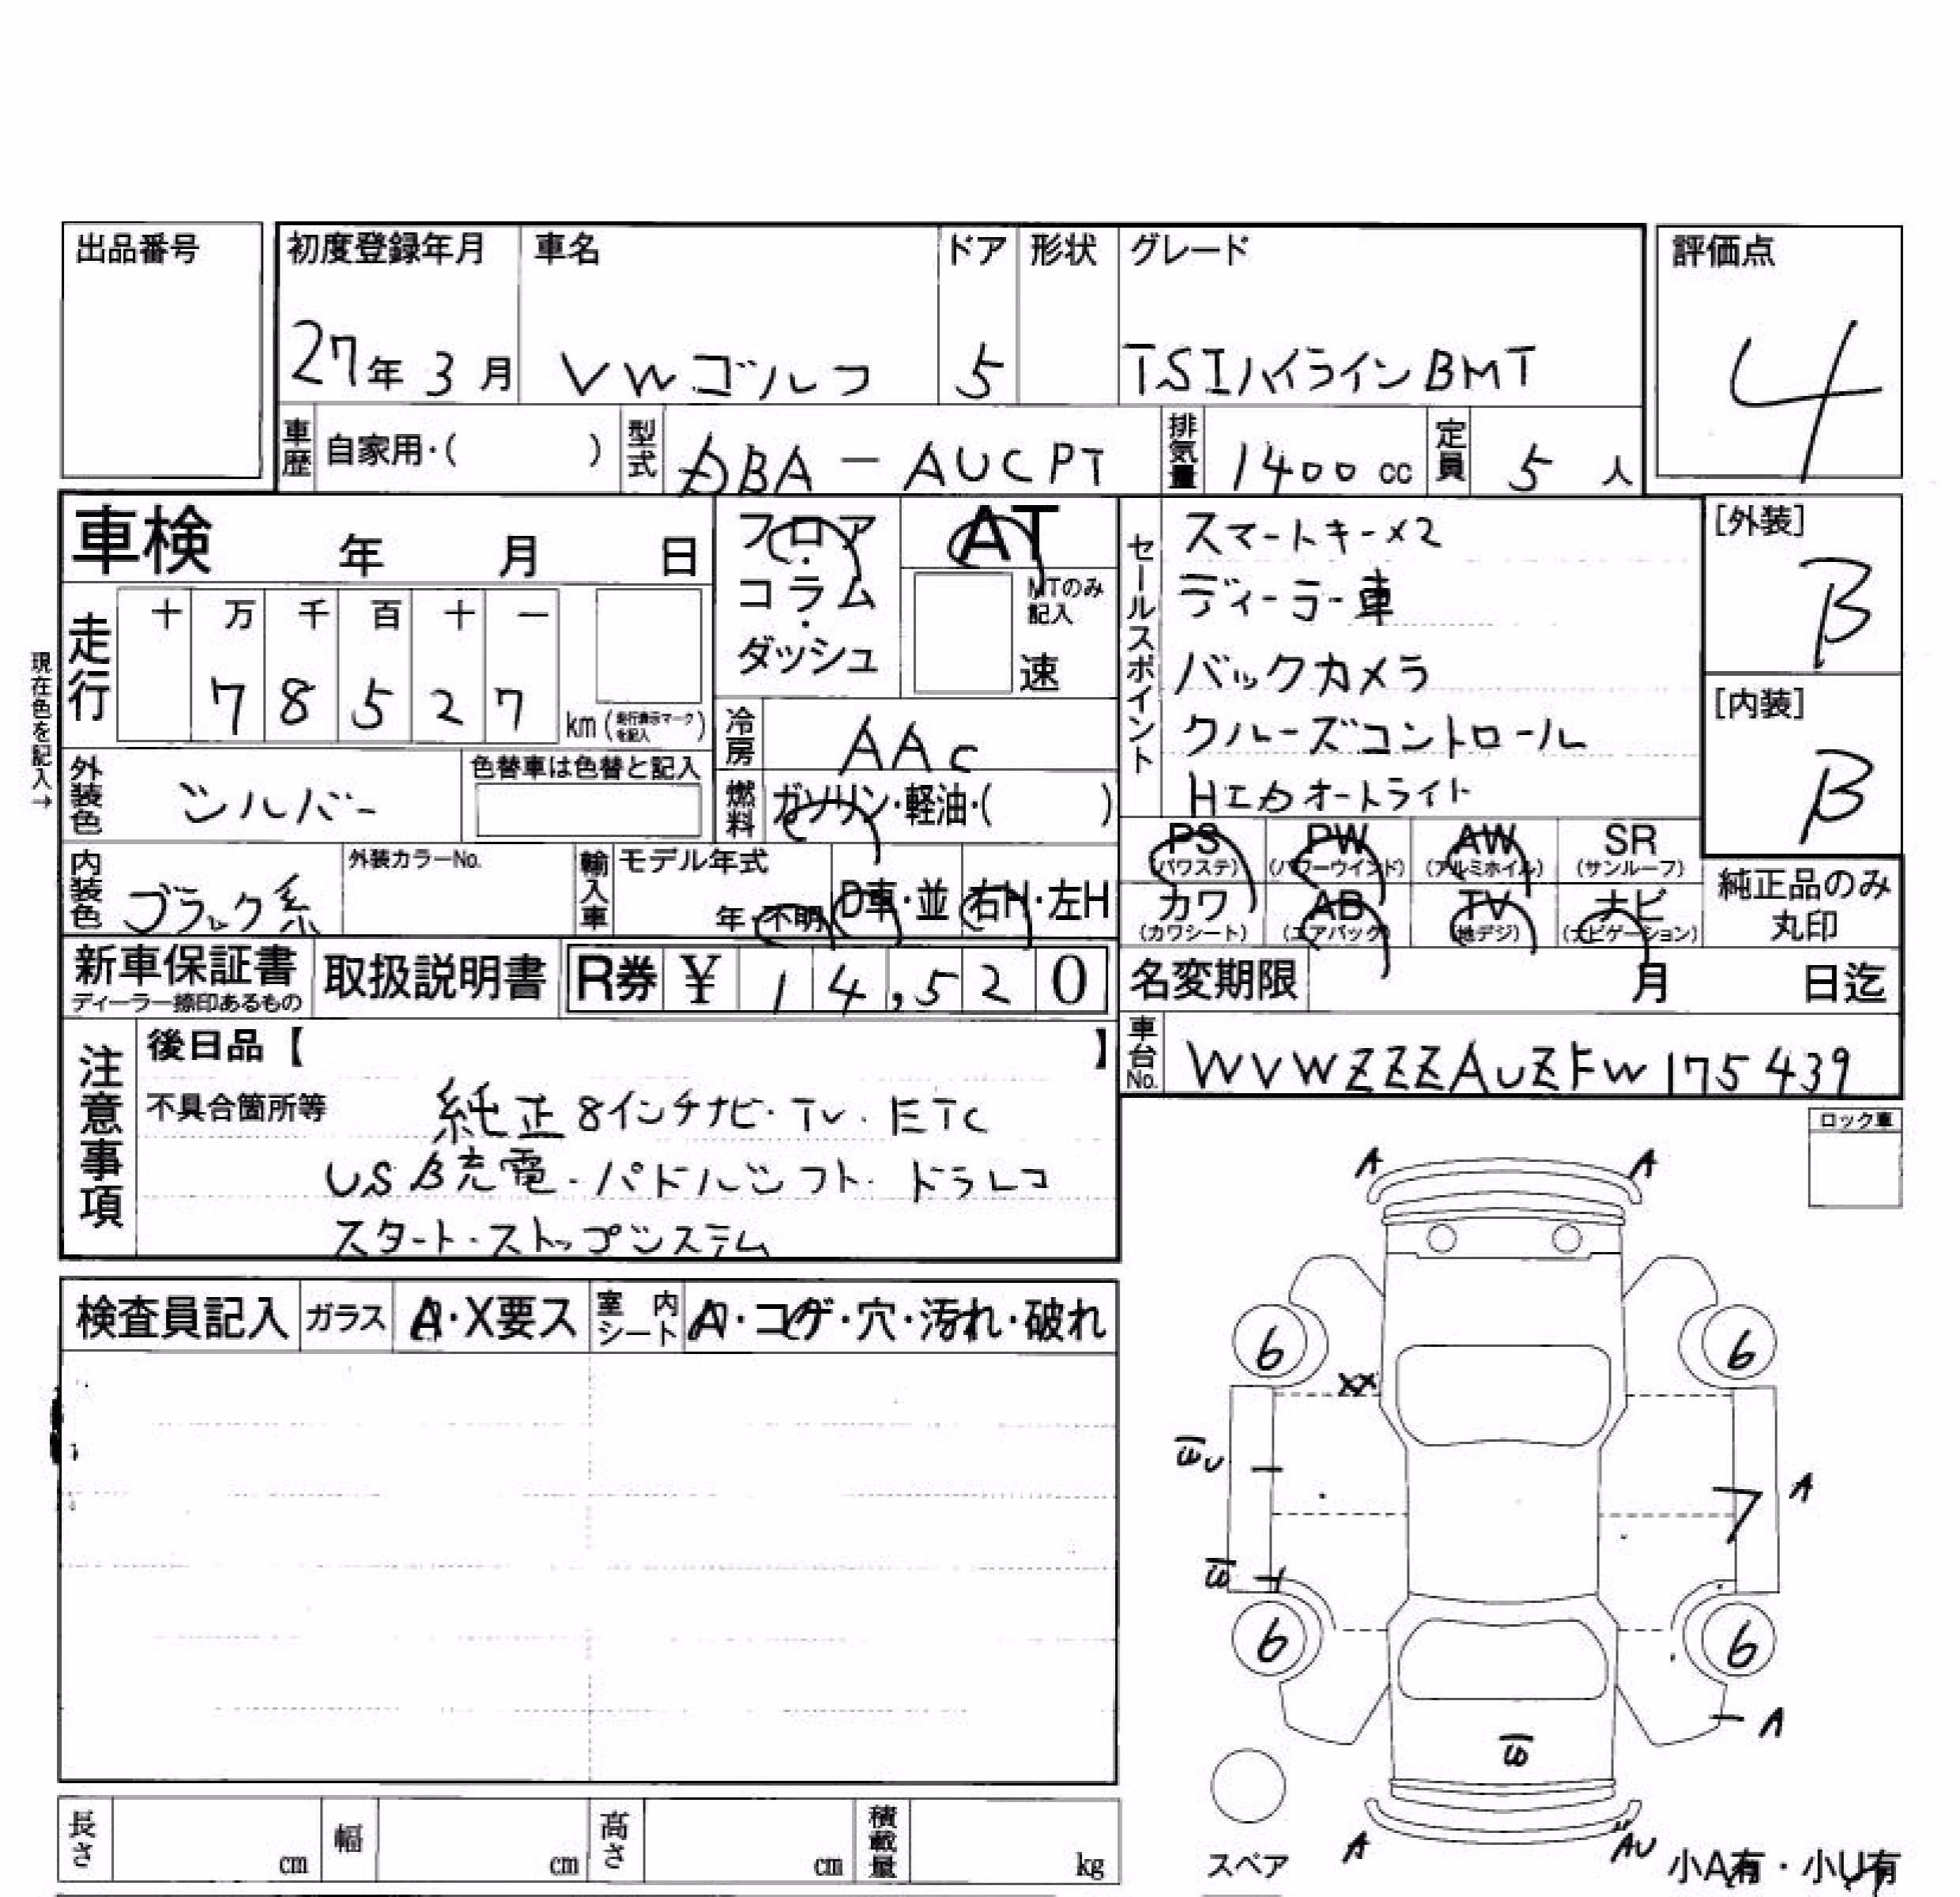 出品番号
初度登録年月 車名 ドア 形状 グレード
評価点
27年3月 VWゴルフ 5 TSIハイラインBMT
4
車歴 自家用・( ) 型式 DBA-AUCPT 排気量 1400cc 定員 5人
車検 年 月 日
フロア・コラム・ダッシュ
AT
MTのみ記入
速
セールスポイント
スマートキー×2
ディーラー車
バックカメラ
クルーズコントロール
HIDオートライト
[外装]
B
[内装]
B
現在色を記入→
走行 十 万 千 百 十 一
78527 km(走行表示マークを記入)
冷房 AAC
外装色 シルバー 色替車は色替と記入
燃料 ガソリン・軽油・( )
PS (パワステ) PW (パワーウインド) AW (アルミホイル) SR (サンルーフ)
カワ (カワシート) AB (エアバック) TV (地デジ) ナビ (ナビゲーション)
純正品のみ丸印
内装色 ブラック系 外装カラーNo. 輸入車 モデル年式 年・不明 D車・並 右H・左H
新車保証書 ディーラー捺印あるもの 取扱説明書 R券 ¥ 14,520
名変期限 月 日迄
車台No. WVWZZZAUZFW175439
注意事項
後日品【 】
不具合箇所等 純正8インチナビ・TV・ETC
USB充電・パドルシフト・ドラレコ
スタート・ストップシステム
ロック車
検査員記入 ガラス A・X要ス 室内シート A・コゲ・穴・汚れ・破れ
A A
6 6
XX
A
7
6 6
A
A AU
スペア
小A有・小U有
長さ cm 幅 cm 高さ cm 積載量 kg